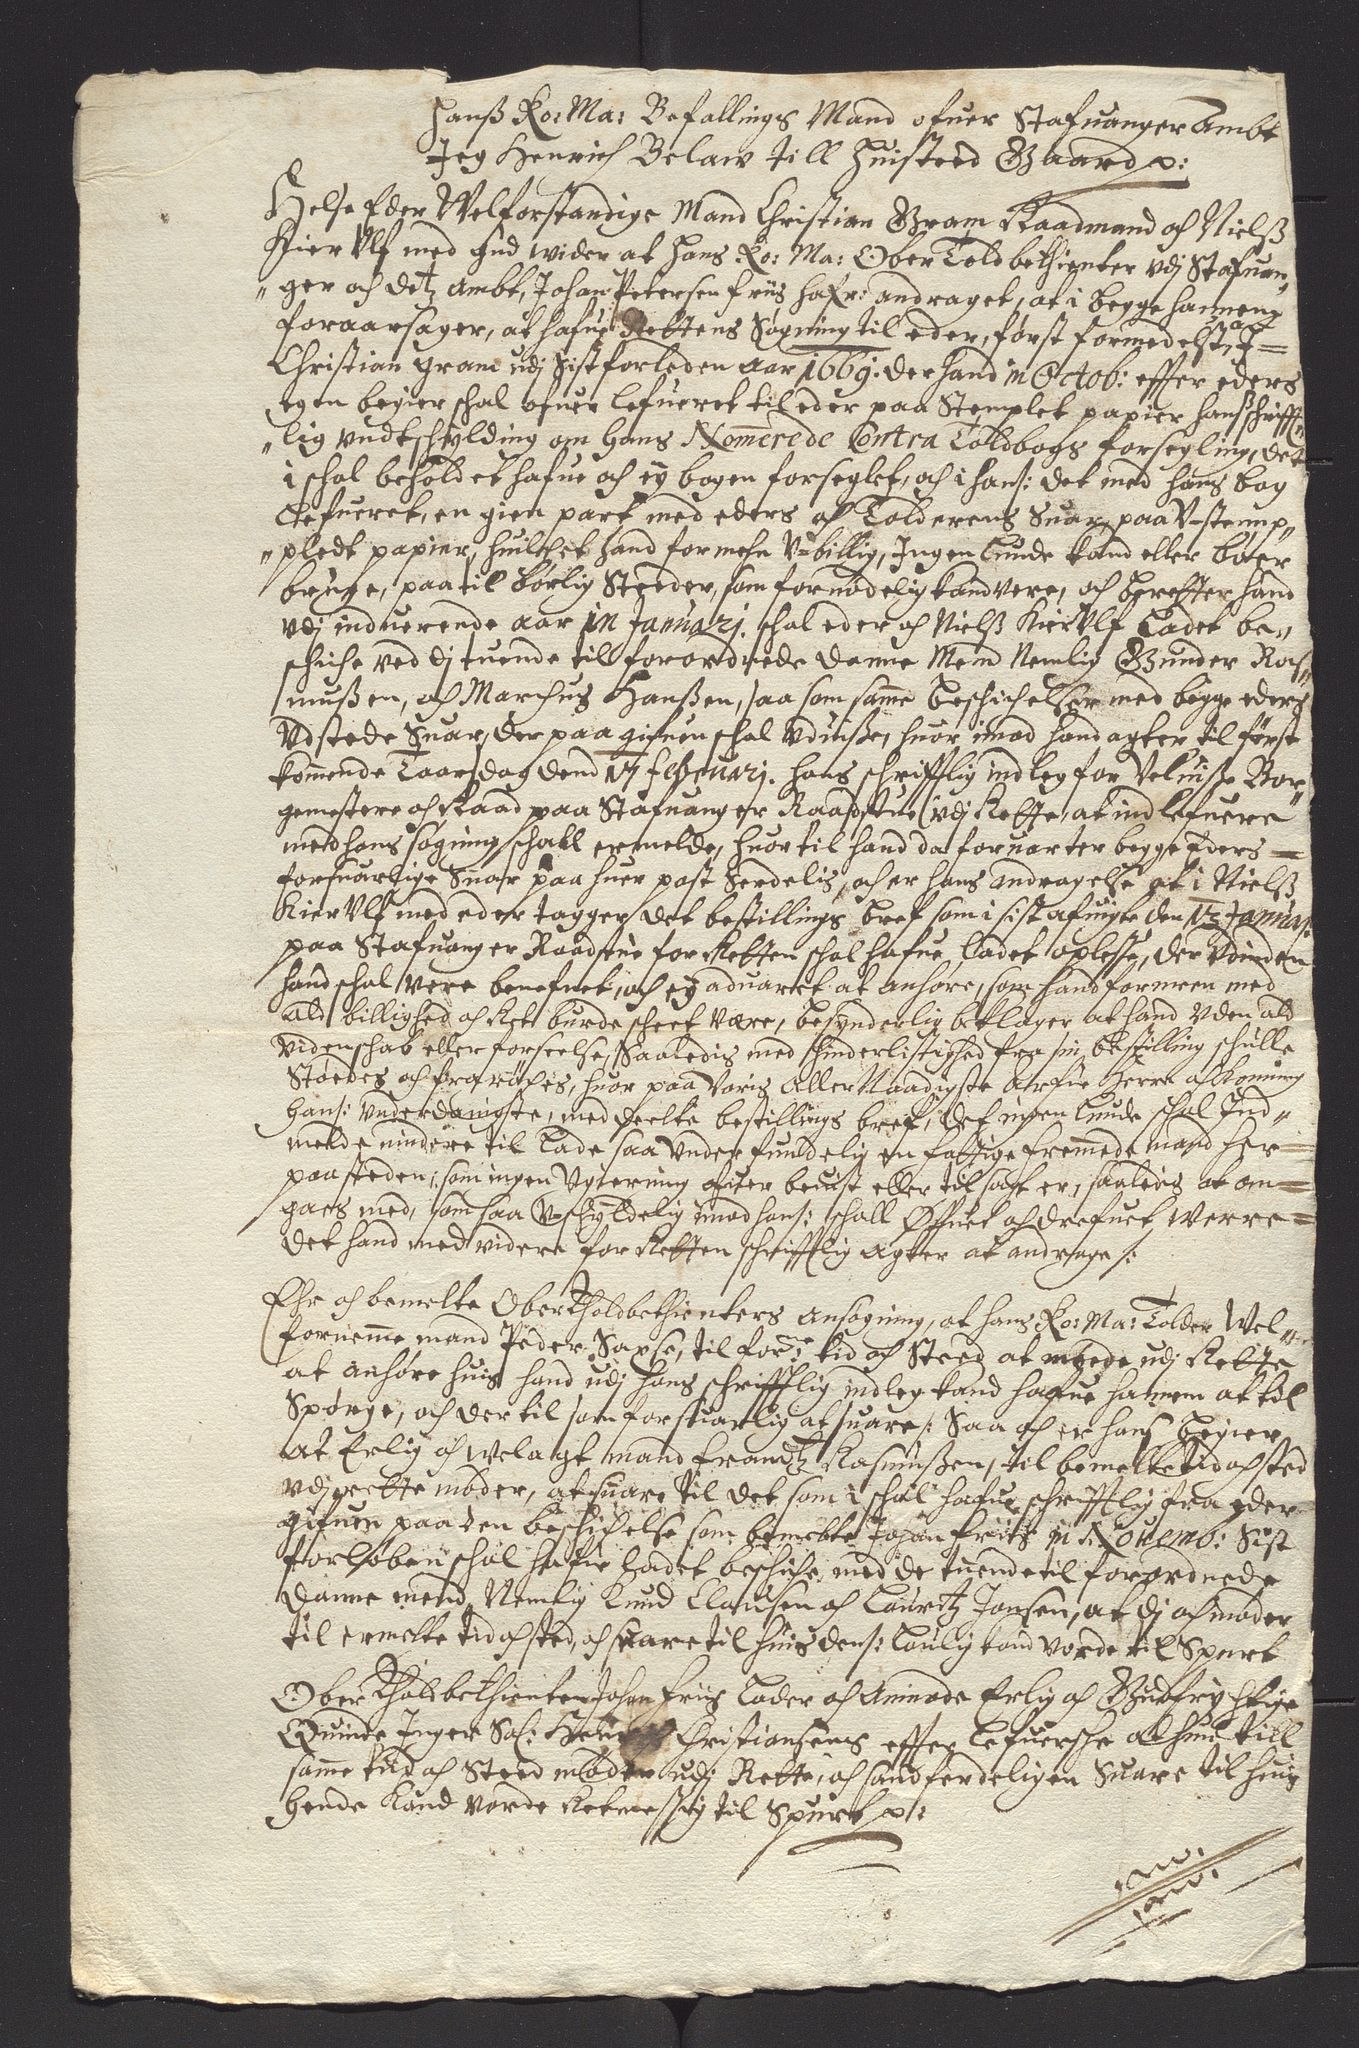 Hanß Ko: Ma: Befallings Mand ofuer Stafuanger Ambt
Jeg Henrich Belaw till Huisteed Gaard p:
Helse Eder Welforstandige Mand Christian Gram Raadmand och Nielß
KierUlf med Gud wider at Hans Ko: Ma: Ober Toldbethienter vdj Stafuan„
„ger och detz Ambt, Johan Petersen Friis hafr: andraget, at i begge hannem
foraarsager, at hafue Rettens Søgning til eder, først formedelst, I =
Christian Gram udj Sist forleden aar 1669. der hand in Octob: effter eders
egen begier schal ofuer lefueret til eder paa Stemplet papier hans schrifft„
„lig undtschylding om hans Nomerede Contra Toldbogs forsegling, det
i schal beholdet hafue och ey bogen forseglet, och i hans: det med hans bog
Lefueret, en gien part med eders och Tolderens Suar, paa V=stemp„
„pledt papier, huilchet hand formehn V=billig, Ingenlunde kand eller bøer
bruge, paa tilbørlig Steeder, som fornødelig kand vere, och beretter hand
vdj induerende aar in Januarj. schal eder och Nielß KierUlf Ladet be„
schiche ved dj tuende tilforordnede Danne Mend Nemlig Gunder Raß„
mußen, och Marchus Hanßen, saa som samme beschichelßer med begge eders
Vdstede Suar, der paa gifuen schal vduiße, huor imod hand agter til først
kommende Taarsdag dend 17 Februarj. hans schrifftlig indleg for Veluiße Bor„
gemestere och Raad paa Stafuanger Raadstue vdj Rette, at ind lefuere
med hans søgning schall ermelde, huortil hand da foruarter begge Eders =
forsuarlige Suar paa huer post Serdelis, och er hans andragelse at i Nielß
KierUlf med eder tagger det bestillings bref som i sist afuigte den 13 Januarj.
paa Stafuanger Raadstue for Retten schal hafue Ladet oplesse, der vdinden
hand schal vere benefnet, och ey aduaret at anhøre, som hand formeen med
ald billighed och Ret burde scheet være, besynderlig beklager at hand vden ald
videnschab eller forseelse, Saaledis med hinderlistighed fra sin bestilling schulle
Støedes och fraröches, huor paa Voris Aller Naadigste Arfue Herre och Konning
hans: underdanigste, med deelte bestillings bref, det ingenlunde schal Ind„
melde mindre til Lade saa underfundelig en fattige fremmede mand her =
paa steden, som ingen Ugierning ofuer beuist eller tilsagt er, saaledis at om =
gaes med, som saa V=schyldelig imod hans: schall Øffuet och drefuet werre =
det hand med videre for Retten schrifftlig agter at andrage /:
Ehr och bemelte Ober Tholdbethienters ansøgning, at hans Ko: Ma: Tolder Wel =
fornemme mand Peder Saxse, til forne: tid och Steed at møede udj Rette
at anhøre huis hand udj hans schrifftlig indleg kand hafue hannem at til
Spørge, och der til som forsuarlig at suare /: Saa och er hans begier
at Erlig och welagt mand Frandtz Rasmußen, til bemelte tid och sted
vdj rette møder, at suare til det som i schal hafue schrifftlig fra eder
gifuen paa den beschichelse som bemelte Johan Friis in Novemb: Sist
forløben schal hafue Ladet beschiche med de tuende tilforordnede
Danne mend, Nemlig Knud Clausen och Lauritz Jansen, at dj och møder
til ermelte tid och sted, och suare til huis dens: Loulig kand vorde til Spurt
Ober Tholdbethienter Johan Friis Lader och Anmode Erlig och Gudfrychtige
Quinde Inger Sal: Henrich Christiansens effter lefuersche at hun till
samme tid och Steed møder udj Rette, och sandferdeligen Suare til huis
hende kand vorde Retmessig til Spurt p: